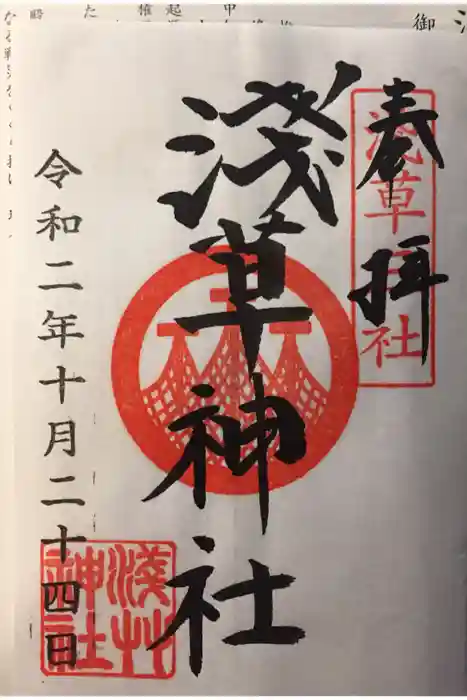 奉拝
淺草神社
淺草神社
令和二年十月二十四日
淺草神社
御